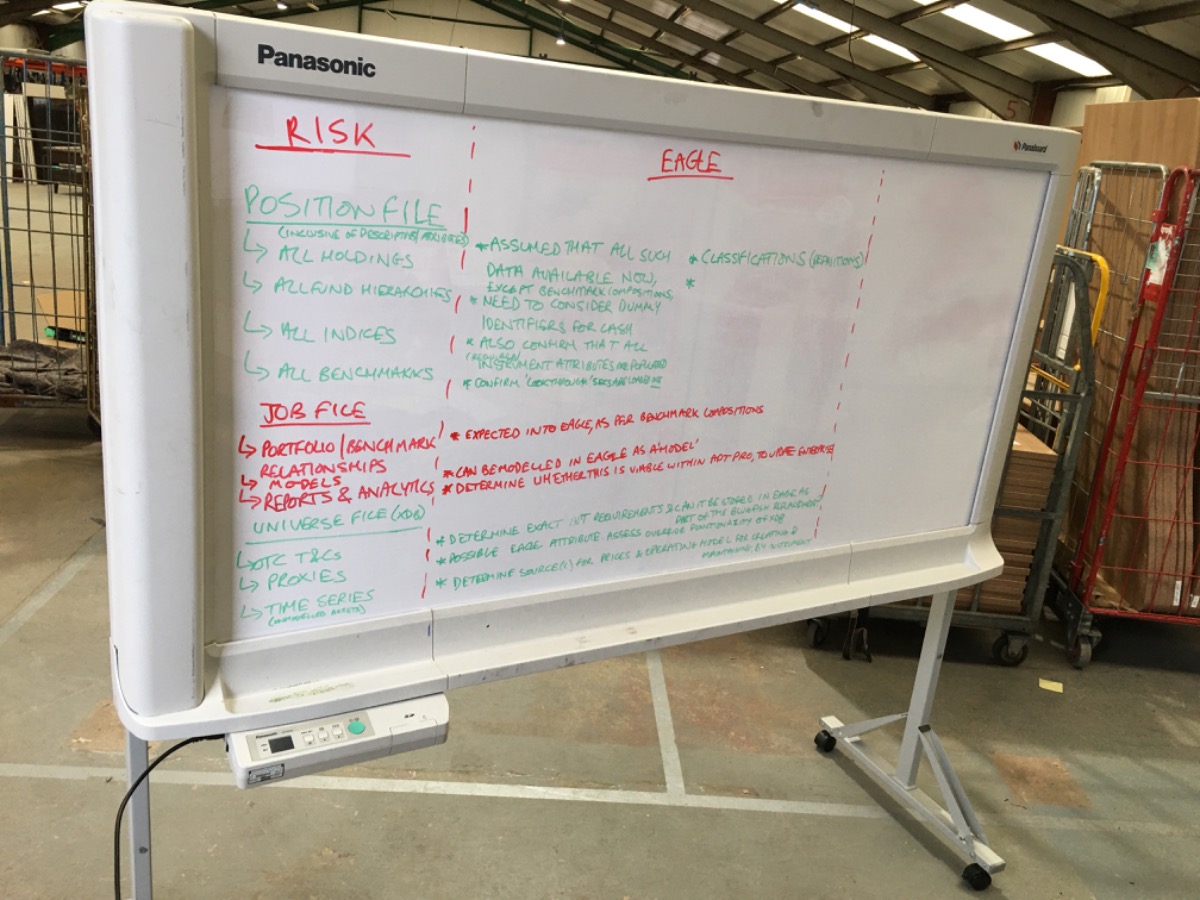 Panasonic
Panaboard
RISK
EAGLE
POSITION FILE
(INCLUSIVE OF DESCRIPTIVE/ATTRIBUTES)
↳ ALL HOLDINGS
↳ ALL FUND HIERARCHIES
↳ ALL INDICES
↳ ALL BENCHMARKS
* ASSUMED THAT ALL SUCH
DATA AVAILABLE NOW,
EXCEPT BENCHMARK COMPOSITIONS,
* NEED TO CONSIDER DUMMY
IDENTIFIERS FOR CASH
* ALSO CONFIRM THAT ALL
(REQUIRED)
INSTRUMENT ATTRIBUTES ARE POPULATED
* CONFIRM 'LOOKTHROUGH' ARE LOADED
* CLASSIFICATIONS (DEFINITIONS)
*
JOB FILE
↳ PORTFOLIO/BENCHMARK
RELATIONSHIPS
↳ MODELS
↳ REPORTS & ANALYTICS
* EXPECTED INTO EAGLE, AS PER BENCHMARK COMPOSITIONS
* CAN BE MODELLED IN EAGLE AS A 'MODEL'
* DETERMINE WHETHER THIS IS VIABLE WITHIN APT PRO, TO UPDATE ENTERPRISE
UNIVERSE FILE (XDB)
↳ OTC T&Cs
↳ PROXIES
↳ TIME SERIES
(UNMODELLED ASSETS)
* DETERMINE EXACT INT REQUIREMENTS & CAN IT BE STORED IN EAGLE AS
PART OF THE BLUEFISH
* POSSIBLE EAGLE ATTRIBUTE. ASSESS OVERRIDE FUNCTIONALITY OF XDB
* DETERMINE SOURCE(S) FOR PRICES & OPERATING MODEL FOR CREATING &
MAINTAINING BY INSTRUMENT
Panasonic
5